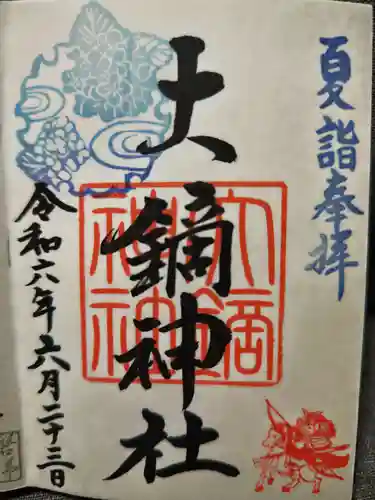 夏詣奉拝
大鏑神社
大鏑
神社
令和六年六月二十三日